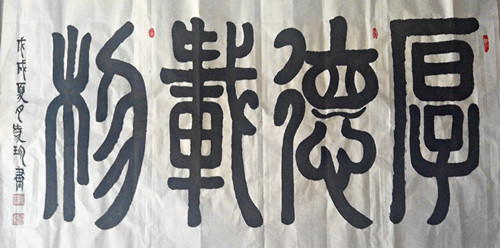 厚德載物
戊戌夏月